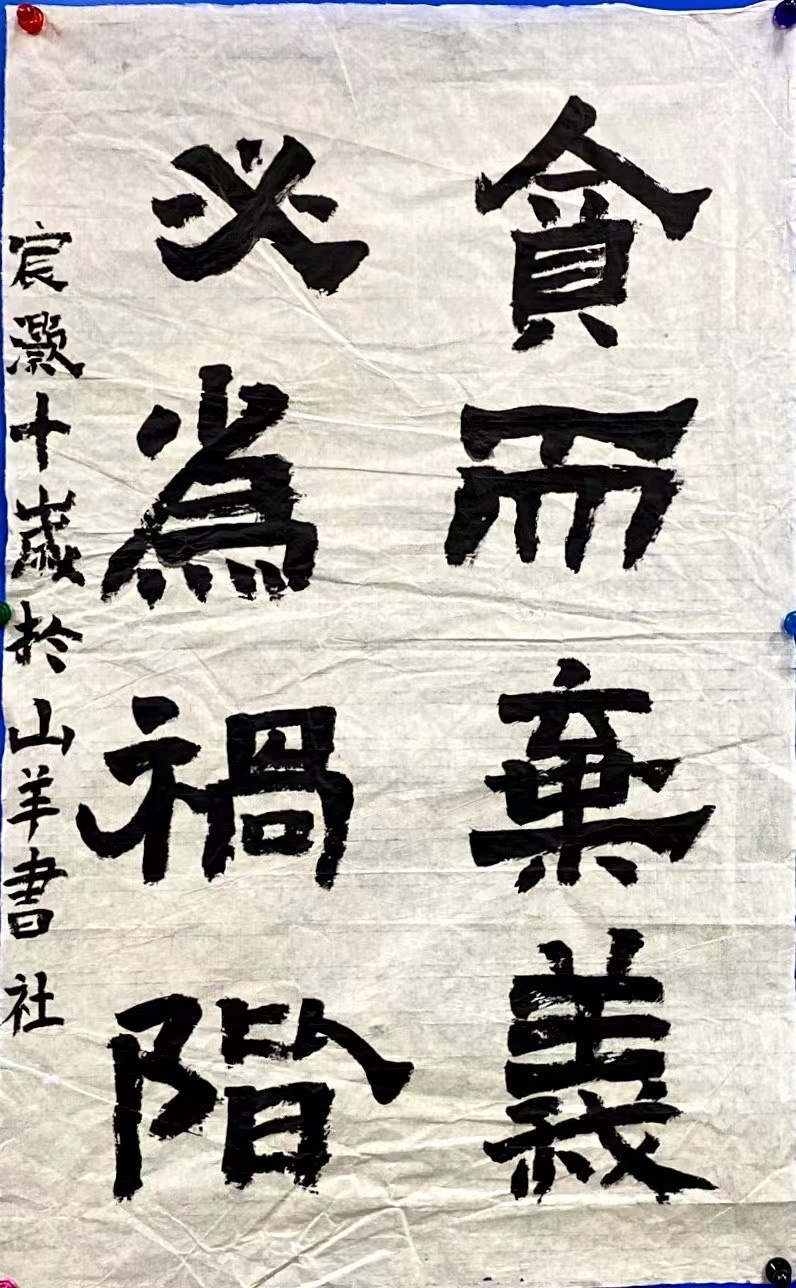 貪而棄義
必為禍階
宸灝十歲於山羊書社